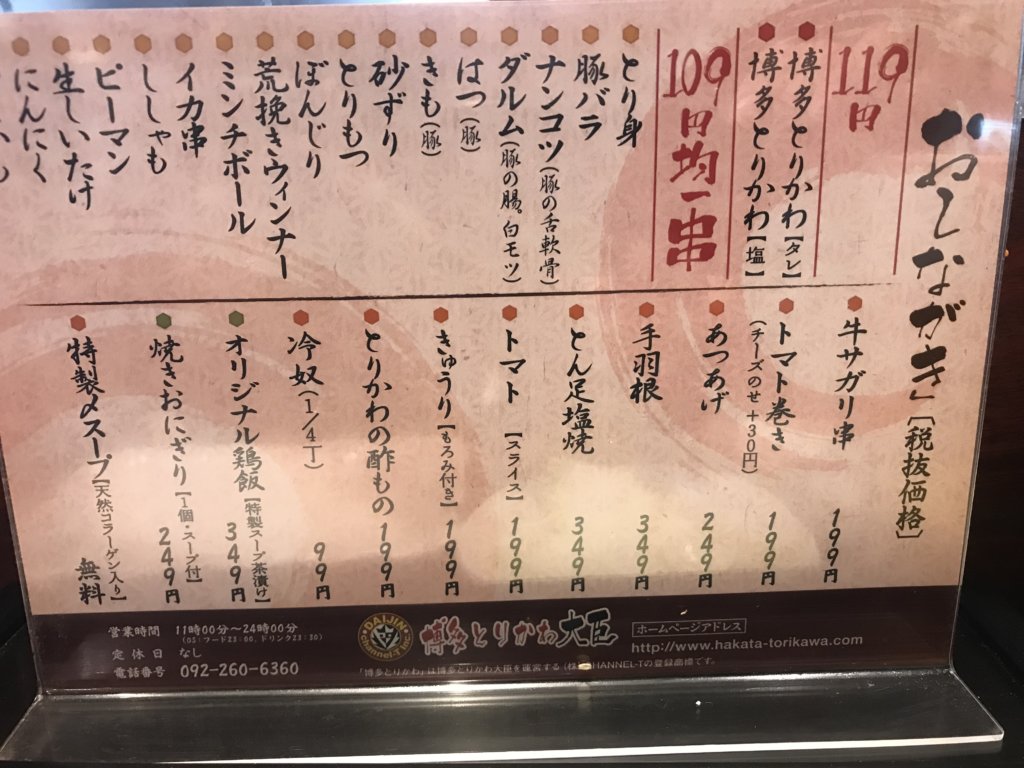 おしながき」【税抜価格】
119円
博多とりかわ【タレ】
博多とりかわ【塩】
109円均一串
とり身
豚バラ
ナンコツ(豚の舌軟骨)
ダルム(豚の腸。白モツ)
はつ(豚)
きも(豚)
砂ずり
とりもつ
ぼんじり
荒挽きウィンナー
ミンチボール
イカ串
ししゃも
ピーマン
生しいたけ
にんにく
牛サガリ串 199円
トマト巻き 199円
(チーズのせ+30円)
あつあげ 249円
手羽根 349円
とん足塩焼 349円
トマト【スライス】 199円
きゅうり【もろみ付き】 199円
とりかわの酢もの 199円
冷奴(1/4丁) 99円
オリジナル鶏飯【特製スープ茶漬け】 349円
焼きおにぎり【1個・スープ付】 249円
特製〆スープ【天然コラーゲン入り】 無料
営業時間 11時00分〜24時00分
(OS:フード23:00、ドリンク23:30)
定休日 なし
電話番号 092-260-6360
DAIJIN
Channel-T Inc.
博多とりかわ大臣
ホームページアドレス
http://www.hakata-torikawa.com
「博多とりかわ」は博多とりかわ大臣を運営する(株)CHANNEL-Tの登録商標です。